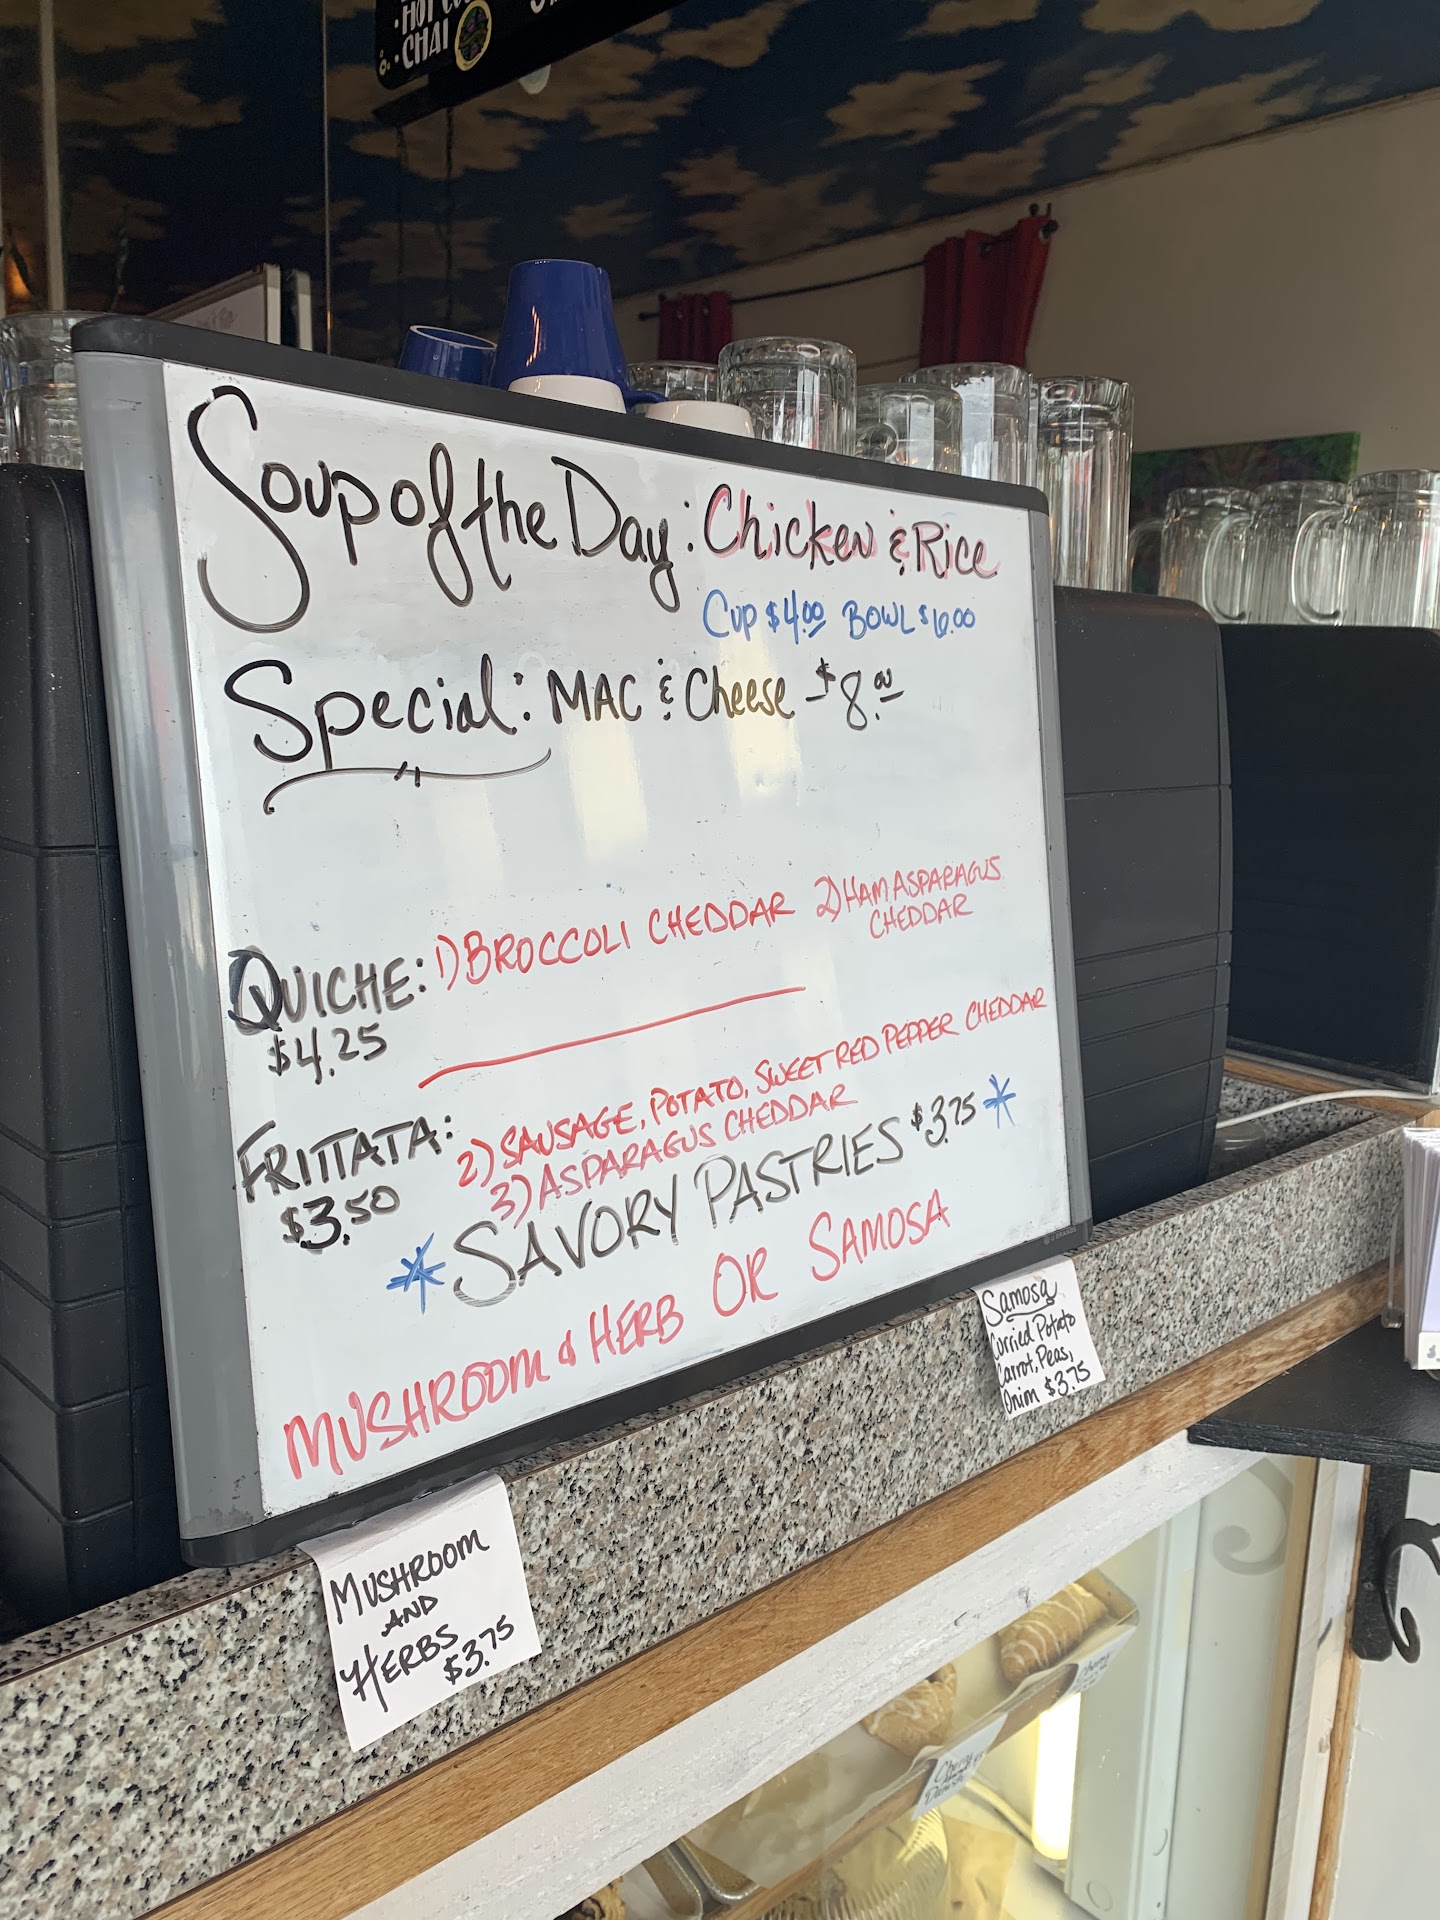 CHAI
Soup of the Day: Chicken & Rice
Cup $4.00 BOWL $6.00
Special: MAC & Cheese $8.00
QUICHE: 1) BROCCOLI CHEDDAR 2) HAM ASPARAGUS
CHEDDAR
$4.25
FRITTATA: 2) SAUSAGE, POTATO, SWEET RED PEPPER CHEDDAR
$3.50 3) ASPARAGUS CHEDDAR
* SAVORY PASTRIES $3.75 *
MUSHROOM & HERB OR SAMOSA
Samosa
Curried Potato
Carrot, Peas,
Onion $3.75
MUSHROOM
AND
HERBS
$3.75
Cherry